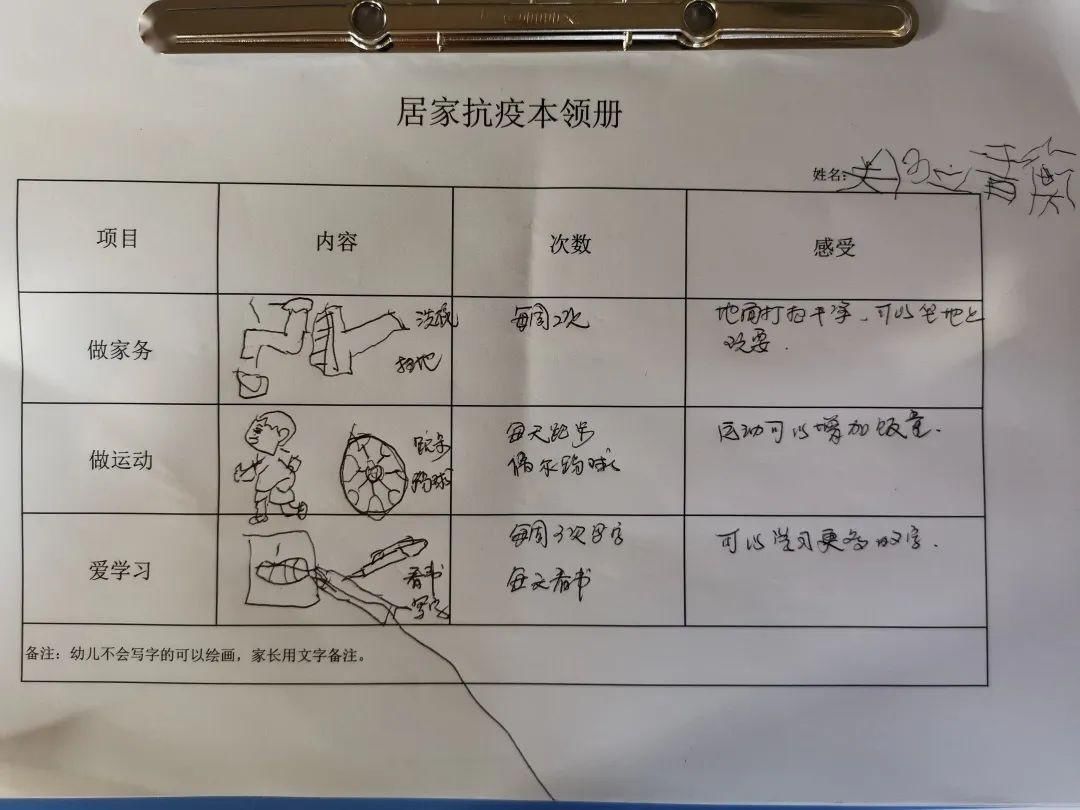 居家抗疫本领册
姓名:
项目 内容 次数 感受
做家务
洗碗
扫地
每周2次
地面打扫干净，可以坐地上
玩耍.
做运动
跑步
踢球
每天跑步
偶尔踢球
运动可以增加饭量.
爱学习
看书
写字
每周3次写字
每天看书
可以学习更多的字.
备注：幼儿不会写字的可以绘画，家长用文字备注。